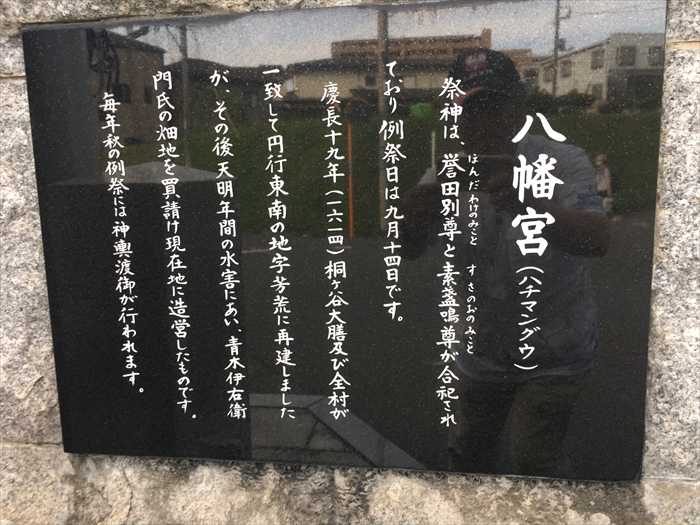 八幡宮(ハチマングウ)
祭神は、誉田別尊と素盞鳴尊が合祀され
ほんだわけのみこと すさのおのみこと
ており例祭日は九月十四日です。
慶長十九年(一六一四)桐ヶ谷大膳及び全村が
一致して円行東南の地字芳荒に再建しました
が、その後天明年間の水害にあい、青木伊右衛
門氏の畑地を買請け現在地に造営したものです。
毎年秋の例祭には神輿渡御が行われます。